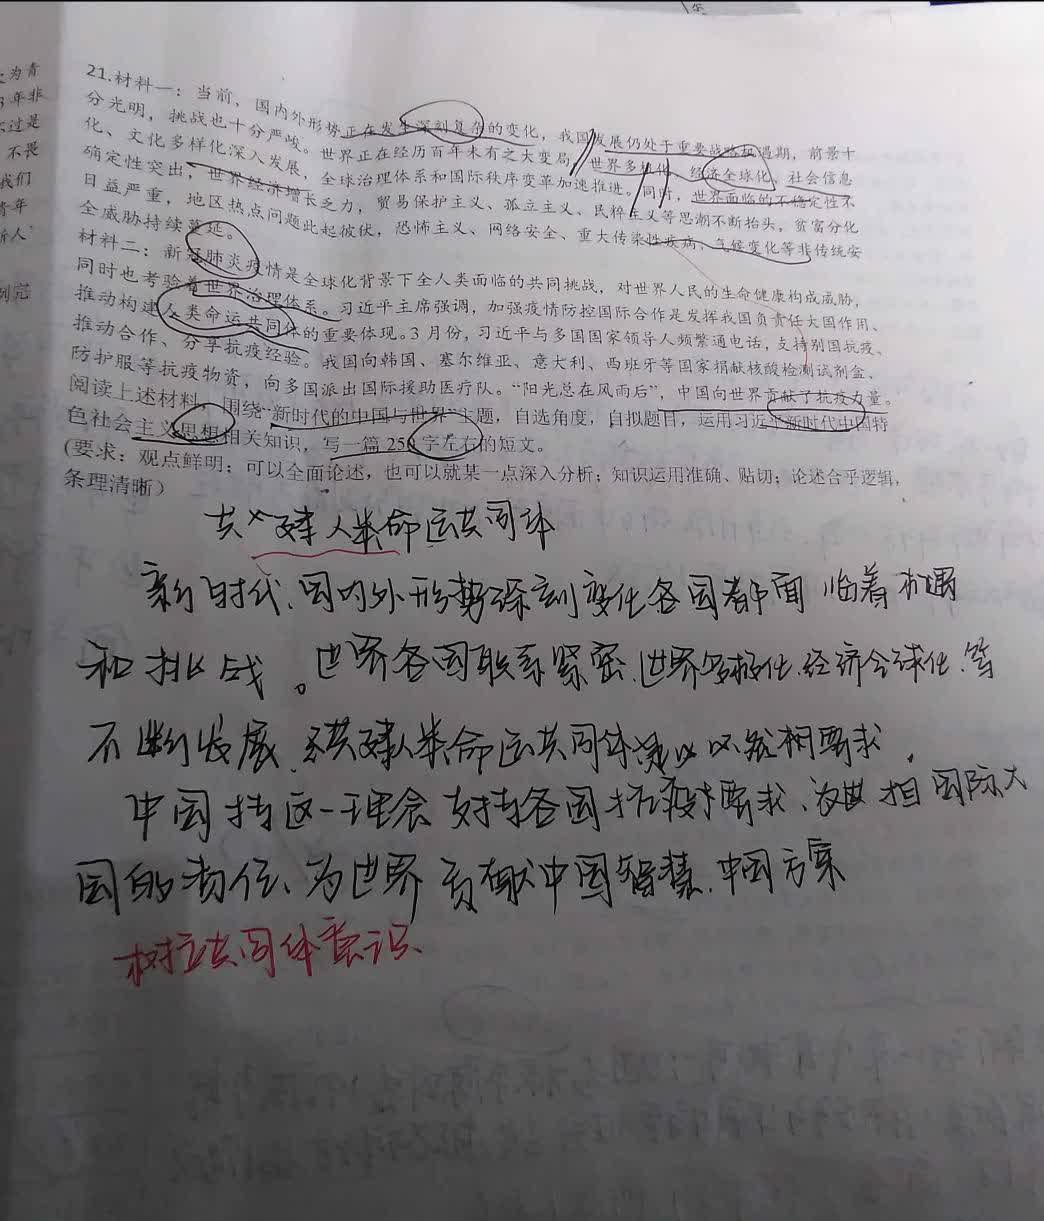 为青
年非
过是
不畏
我们
青年
新人"
21.材料一：当前，国内外形势正在发生深刻复杂的变化，我国发展仍处于重要战略机遇期，前景十
分光明，挑战也十分严峻。世界正在经历百年未有之大变局，世界多极化、经济全球化、社会信息
化、文化多样化深入发展，全球治理体系和国际秩序变革加速推进。同时，世界面临的不稳定性不
确定性突出，世界经济增长乏力，贸易保护主义、孤立主义、民粹主义等思潮不断抬头，贫富分化
日益严重，地区热点问题此起彼伏，恐怖主义、网络安全、重大传染性疾病、气候变化等非传统安
全威胁持续蔓延。
材料二：新冠肺炎疫情是全球化背景下全人类面临的共同挑战，对世界人民的生命健康构成威胁，
同时也考验着世界治理体系。习近平主席强调，加强疫情防控国际合作是发挥我国负责任大国作用、
推动构建人类命运共同体的重要体现。3 月份，习近平与多国国家领导人频繁通电话，支持别国抗疫、
推动合作、分享抗疫经验。我国向韩国、塞尔维亚、意大利、西班牙等国家捐献核酸检测试剂盒、
防护服等抗疫物资，向多国派出国际援助医疗队。“阳光总在风雨后”，中国向世界贡献了抗疫力量。
阅读上述材料，围绕“新时代的中国与世界”主题，自选角度，自拟题目，运用习近平新时代中国特
色社会主义思想相关知识，写一篇 250 字左右的短文。
(要求：观点鲜明；可以全面论述，也可以就某一点深入分析；知识运用准确、贴切；论述合乎逻辑，
条理清晰）
共建人类命运共同体
新时代、国内外形势深刻变化各国都面临着机遇
和挑战。世界各国联系紧密、世界多极化、经济全球化、等
不断发展、共建人类命运共同体 要求
中国持这一理念支持各国抗疫要求、 担国际大
国的责任、为世界贡献中国智慧、中国方案
树立共同体意识